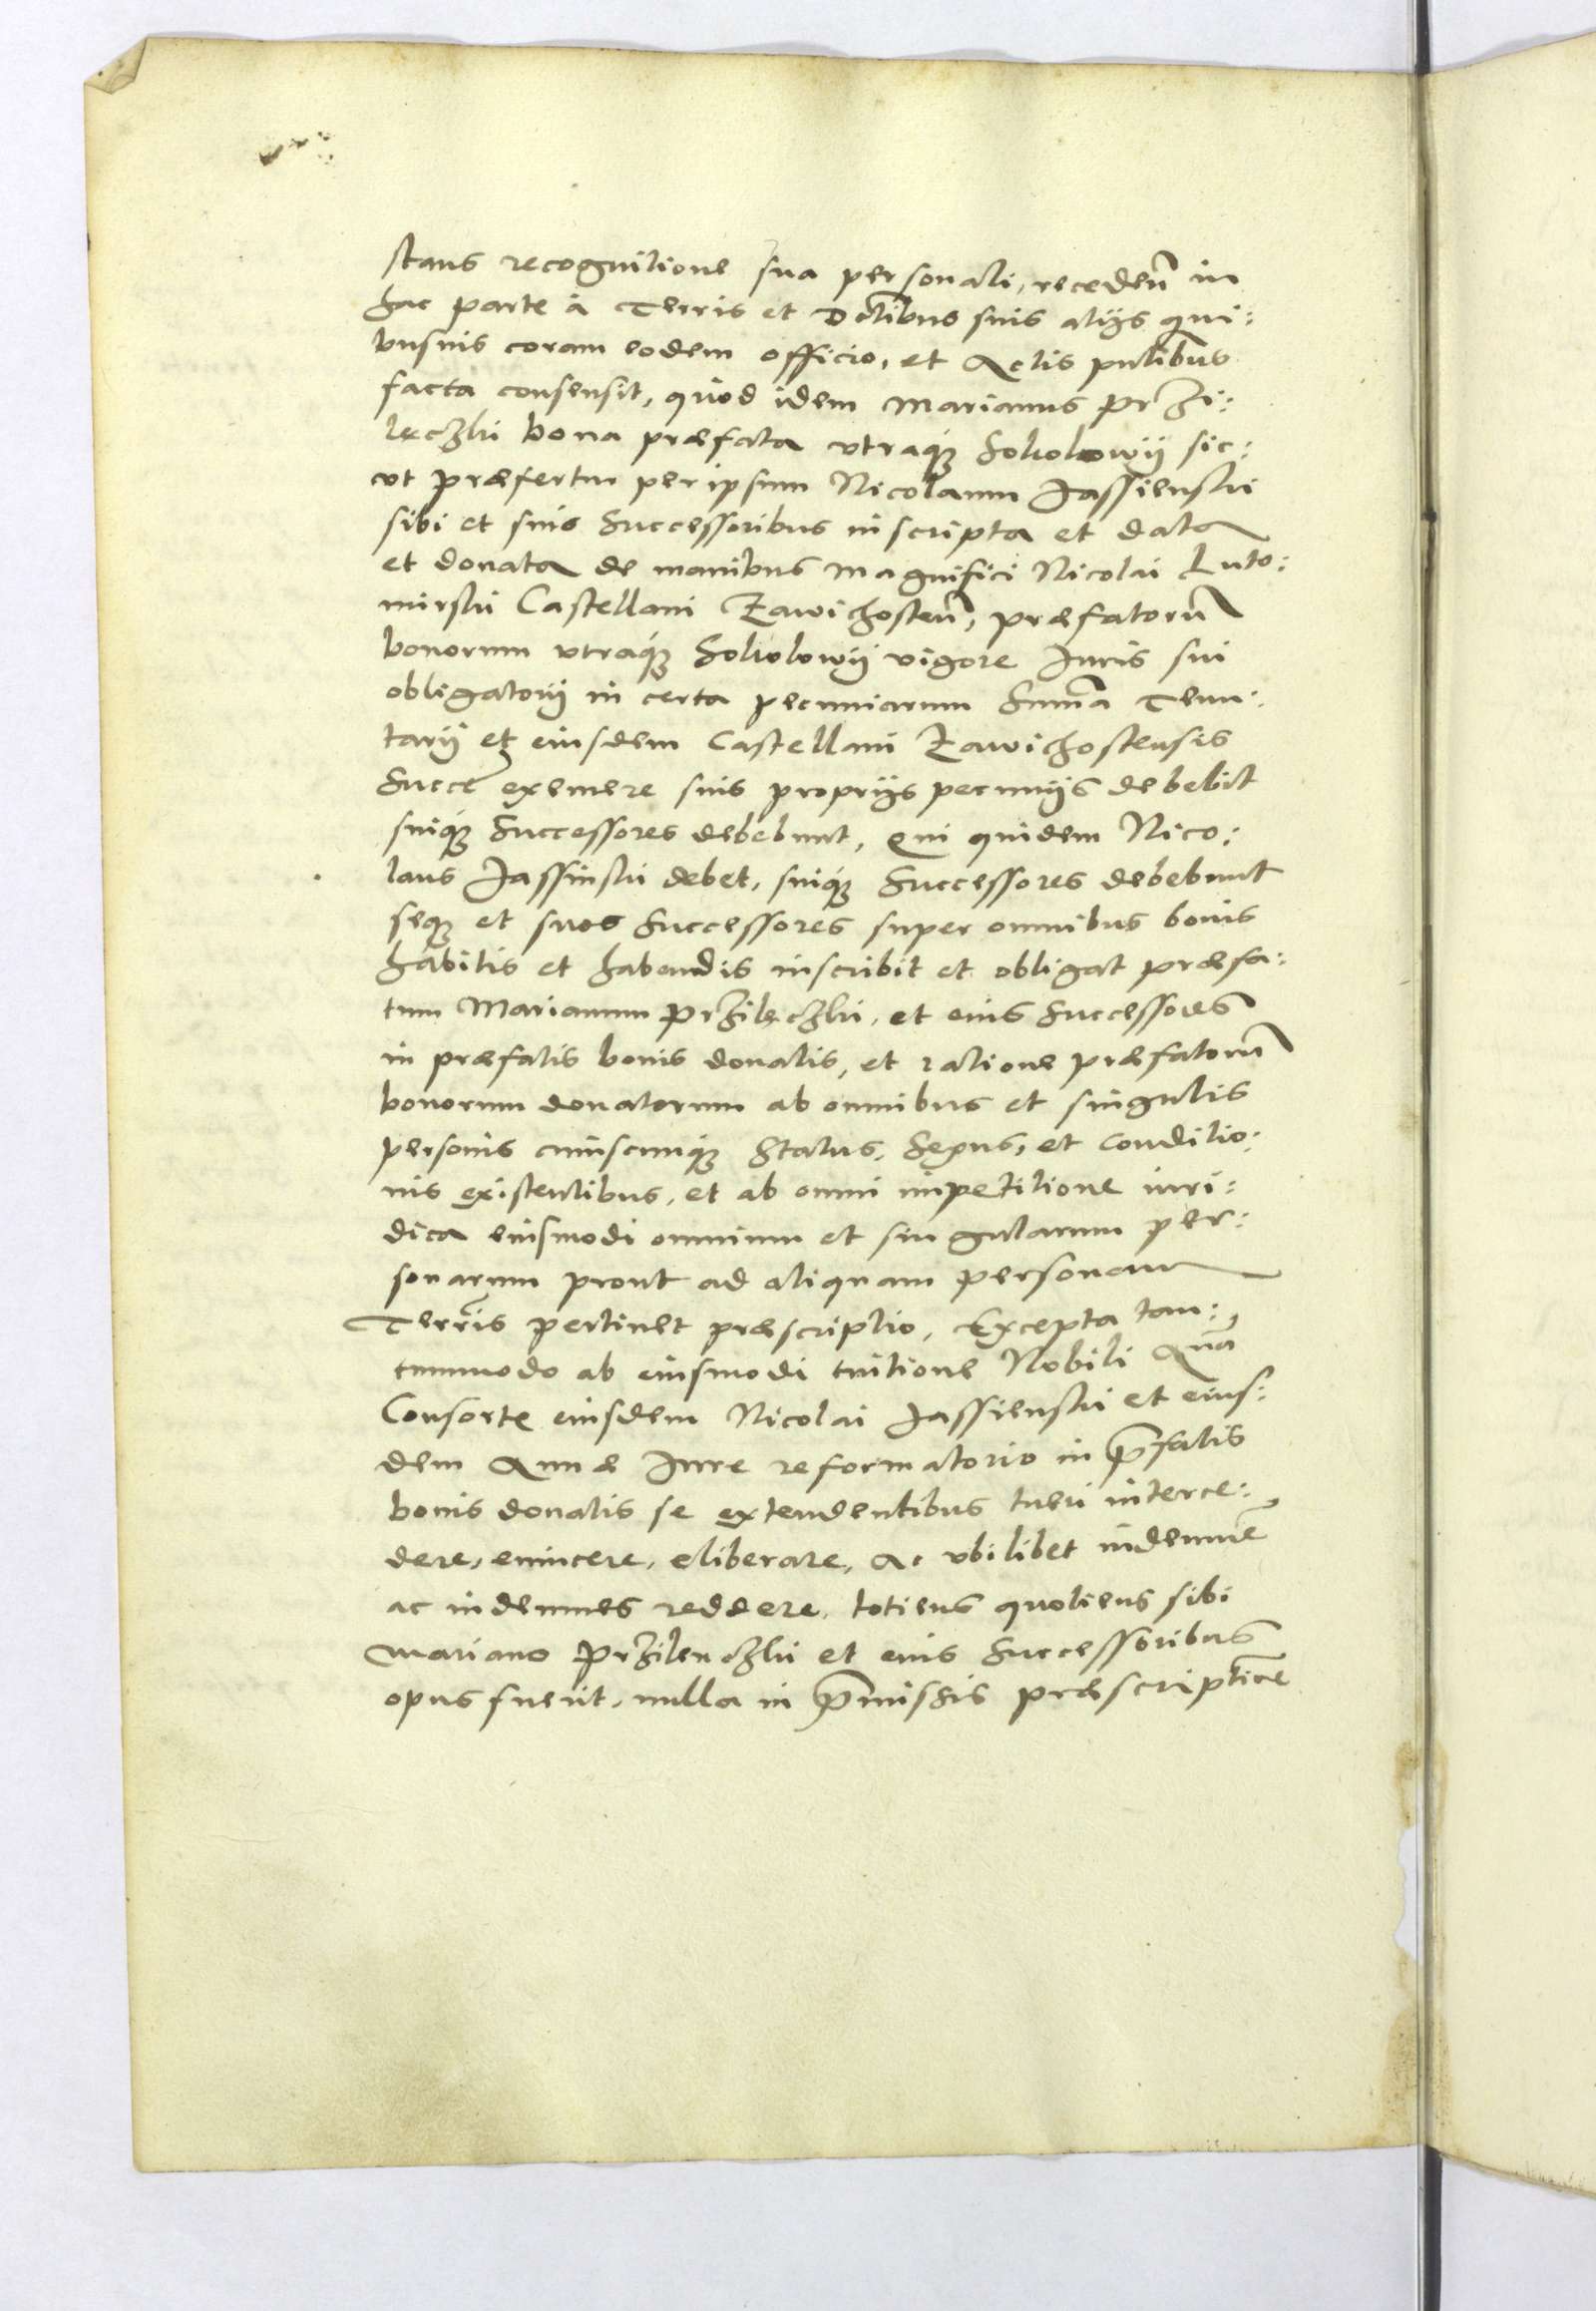 stans recognitione sua personali, receden̄ in
hac parte à Terris et Dctibus suis alijs qui:
busuis coram eodem officio, et Actis pntibus
facta consensit, quod idem Marianus Przi:
lęczki bona præfata vtraq3 Sokolowij sic:
ut præfertur per ipsum Nicolaum Jassienski
sibi et suis Successoribus inscripta et data
et donata de manibus magnifici Nicolai Luto:
mirski Castellani Zawichosten̄, præfatorū
bonorum vtraq3 Sokolowij vigore Iuris sui
obligatorij in certa pecuniarum Summa Tenu:
tarij et eiusdem Castellani Zawichostensis
Succē eximere suis proprijs pecunijs debebit
suiq3 Successores debebunt, Qui quidem Nico:
laus Jassinski debet, suiq3 Successores debebunt
seq3 et suos Successores super omnibus bonis
habitis et habendis inscribit et obligat præfa:
tum Marianum Przilęczki, et eius Successores
in præfatis bonis donatis, et ratione præfatorū
bonorum donatorum ab omnibus et singulis
personis cuiuscunq3 Status, Sexus, et Conditio:
nis existentibus, et ab omni impetitione iuri:
dica eiusmodi omnium et singularum per:
sonarum prout ad aliquam personam
Terr̄is pertinet præscriptio, Excepta tan:
tummodo ab eiusmodi tuitione Nobili Anna
Consorte eiusdem Nicolai Jassienski et eius:
dem Annæ Iure reformatorio in p̄fatis
bonis donatis se extendentibus tueri interce:
dere, euincere, eliberare, ac vbilibet indemnē
ac indemnes reddere, totiens quotiens sibi
Mariano Przilenczki et eius Successoribus
opus fuerit, nulla in p̄missis præscriptiōe